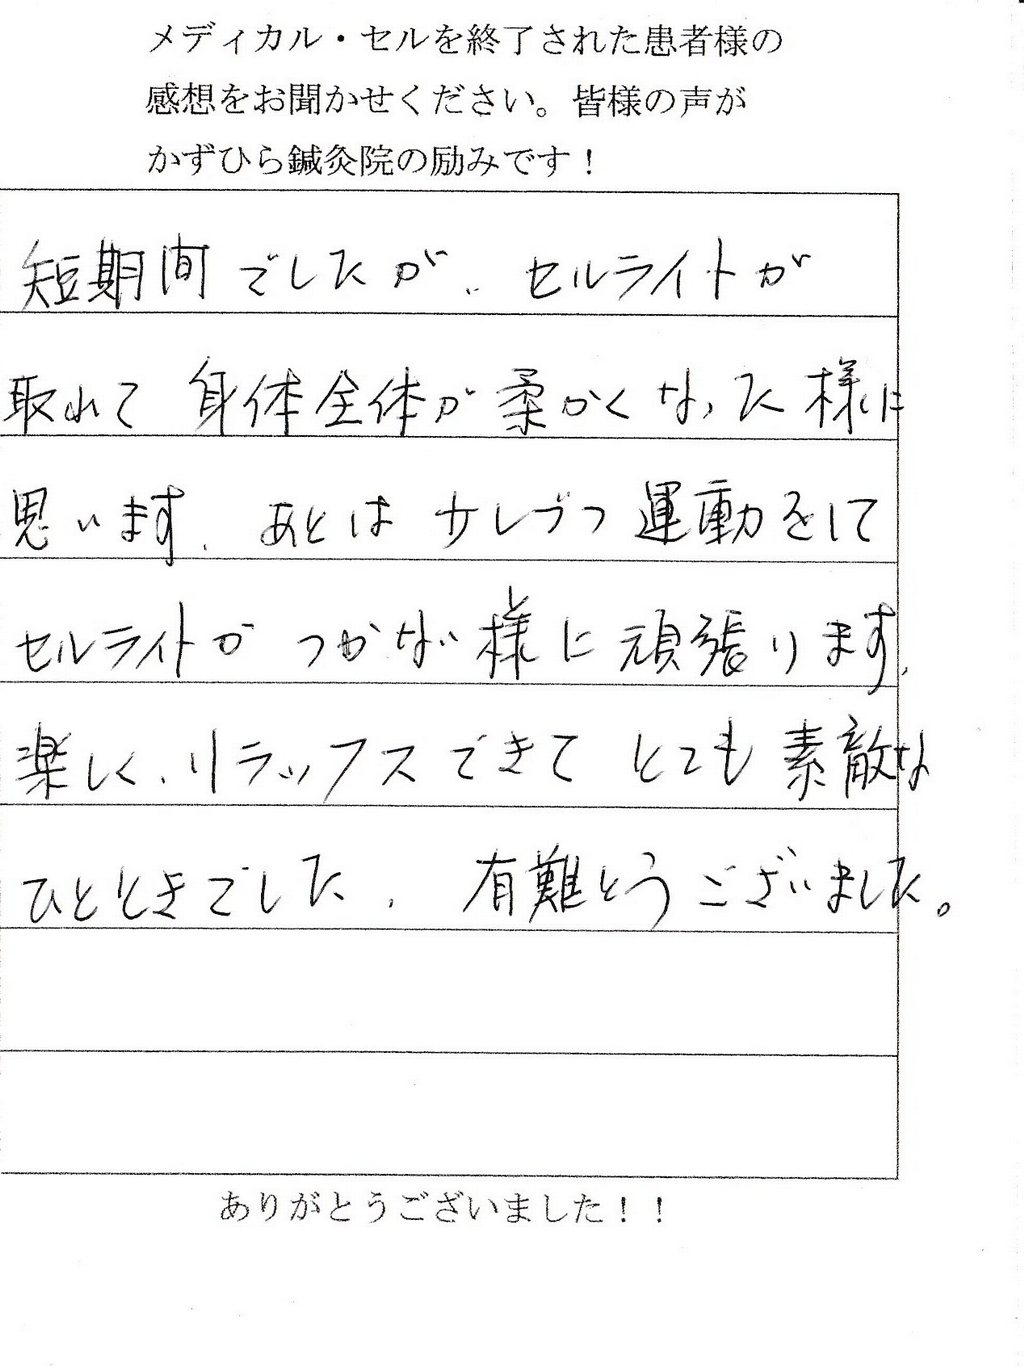 メディカル・セルを終了された患者様の
感想をお聞かせください。皆様の声が
かずひら鍼灸院の励みです！
短期間でしたが、セルライトが
取れて身体全体が柔かくなった様に
思います。あとは少しづつ運動をして
セルライトがつかない様に頑張ります。
楽しく、リラックスできてとても素敵な
ひとときでした。有難とうございました。
ありがとうございました！！